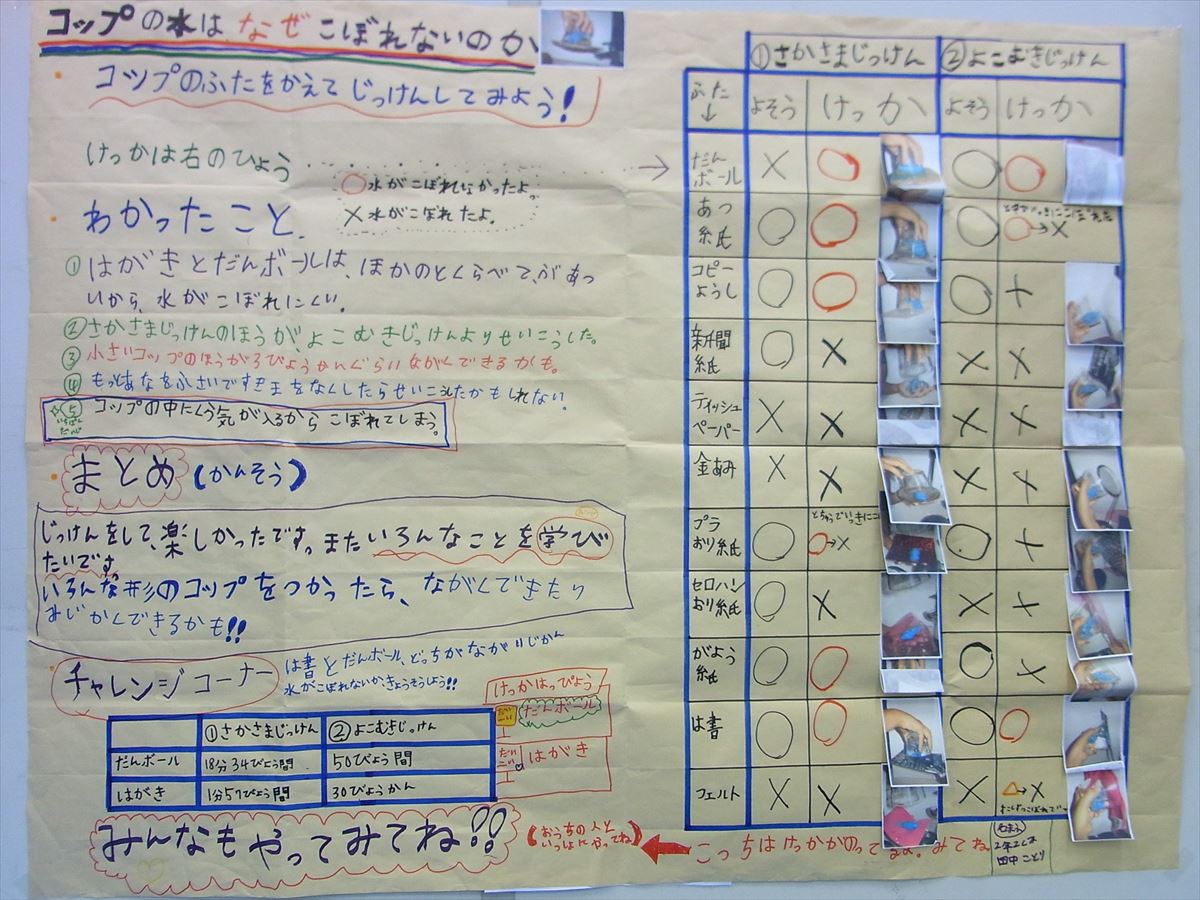 コップの水は なぜ こぼれないのか
・コップのふたをかえてじっけんしてみよう!
けっかは右のひょう
○水がこぼれなかったよ。
×水がこぼれたよ。
・わかったこと.
①はがきとだんボールは、ほかのとくらべて、
いから、水がこぼれにくい.
②さかさまじっけんのほうが、よこむきじっけんよりせいこうした。
③小さいコップのほうが
④もっとあなをふさいで
をなくしたらせいこうしたかもしれない.
⑤コップの中にくう気が入るからこぼれてしまう。
いちばん
・まとめ(かんそう)
じっけんをして、楽しかったです。またいろんなことを学び
たいです
いろんな形のコップをつかったら、ながくできたり
みじかくできるかも!!
・チャレンジコーナー
は書とだんボール、どっちがながいじかん
水がこぼれないか、きょうそうしよう!!
①さかさまじっけん ②よこむきじっけん
だんボール 18分34びょう間 50びょう間
はがき 1分57びょう間 30びょうかん
けっかはっぴょう
だんボール
はがき
みんなもやってみてね!!
(おうちの人と
いっしょにやってね)
①さかさまじっけん ②よこむきじっけん
ふた↓ よそう けっか よそう けっか
だん
ボール × ○ ○ ○
あつ
紙 ○ ○ ○ ○→×
コピー
ようし ○ ○ ○ ×
新聞
紙 ○ × × ×
ティッシュ
ペーパー × × × ×
金あみ × × × ×
プラ
おり紙 ○ ○→× ○ ×
セロハン
おり紙 ○ × × ×
がよう
紙 ○ ○ ○ ×
は書 ○ ○ ○ ○
フェルト × × × △→×
こっちはけっかがのってるよ。みてね
2年2くみ
田中ことり